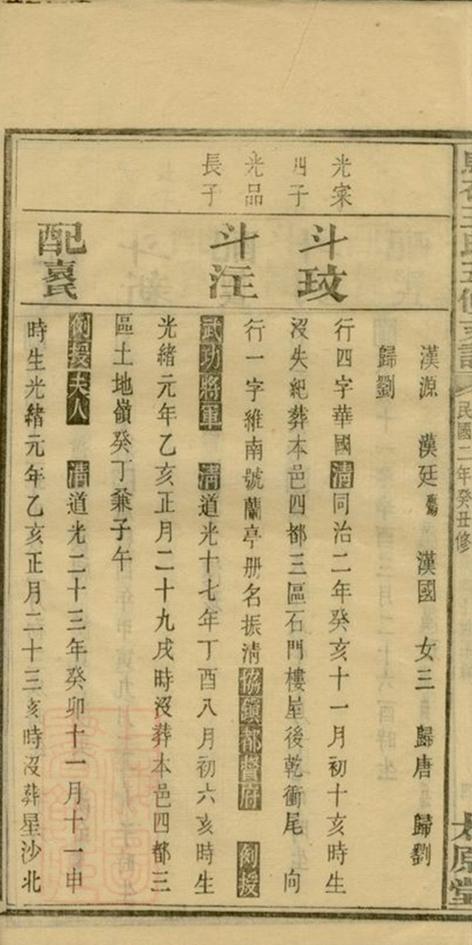 民國二年癸丑修
太原堂
漢源 漢廷 漢國 女三 歸唐 歸劉
歸劉
光宷四子
斗玟
行四字華國清同治二年癸亥十一月初十亥時生
沒失紀葬本邑四都三區石門樓屋後乾衝尾 向
光品長子
斗汪
行一字維南號蘭亭册名振清協鎮都督府 例授
武功將軍 清道光十七年丁酉八月初六亥時生
光緒元年乙亥正月二十九戌時沒葬本邑四都三
區土地嶺癸丁兼子午
配袁氏
例授夫人 清道光二十三年癸卯十一月十一申
時生光緒元年乙亥正月二十三亥時沒葬星沙北